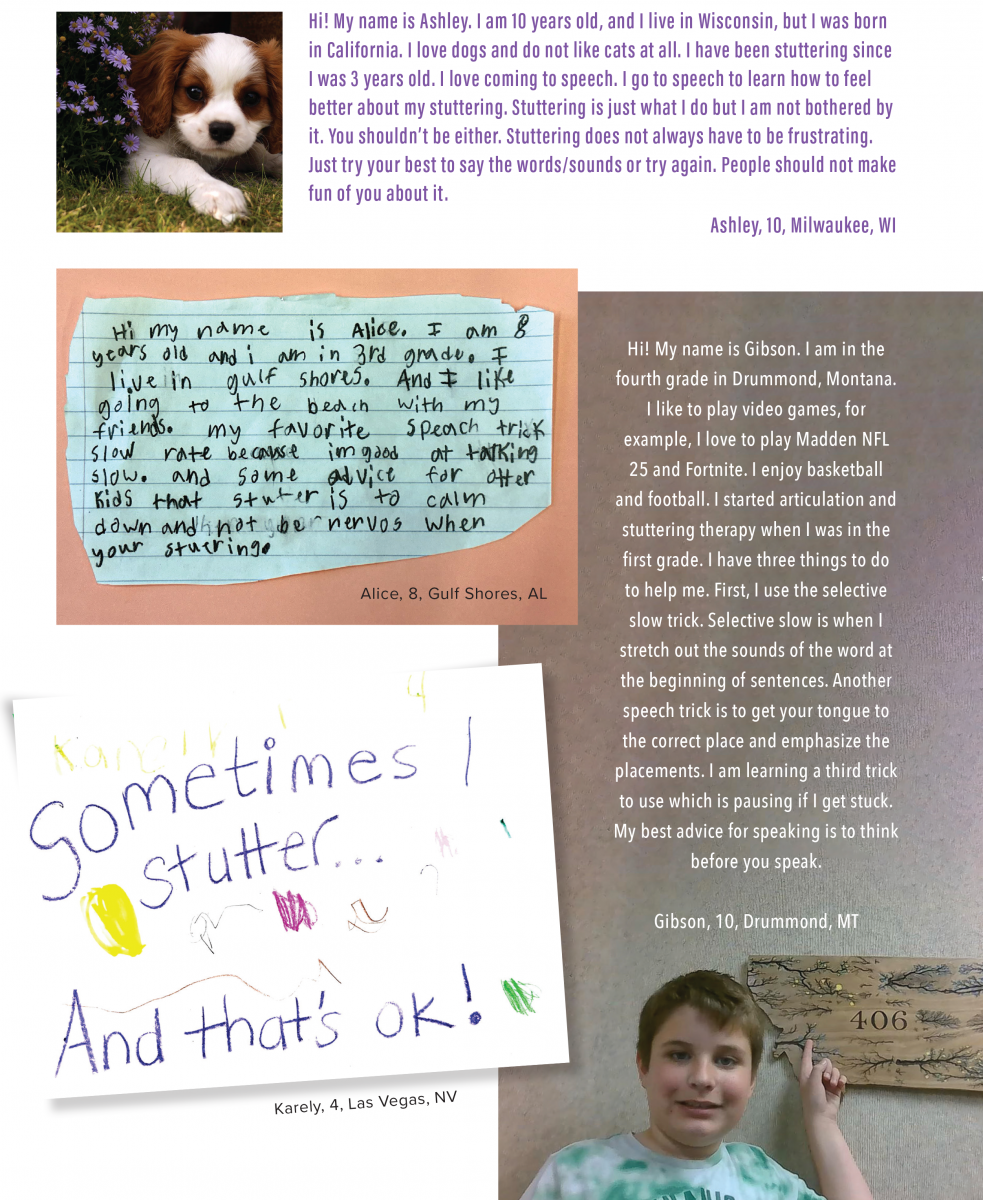 Hi! My name is Ashley. I am 10 years old, and I live in Wisconsin, but I was born
in California. I love dogs and do not like cats at all. I have been stuttering since
I was 3 years old. I love coming to speech. I go to speech to learn how to feel
better about my stuttering. Stuttering is just what I do but I am not bothered by
it. You shouldn’t be either. Stuttering does not always have to be frustrating.
Just try your best to say the words/sounds or try again. People should not make
fun of you about it.
Ashley, 10, Milwaukee, WI
Hi my name is Alice. I am 8
years old and i am in 3rd grade. I
live in gulf shores. And I like
going to the beach with my
friends. my favorite speach trick
slow rate because im good at talking
slow. and some advice for otter
kids that stuter is to calm
down and not be nervos when
your stutring.
Alice, 8, Gulf Shores, AL
Karely 4
Sometimes I
stutter...
And that's ok!
Karely, 4, Las Vegas, NV
Hi! My name is Gibson. I am in the
fourth grade in Drummond, Montana.
I like to play video games, for
example, I love to play Madden NFL
25 and Fortnite. I enjoy basketball
and football. I started articulation and
stuttering therapy when I was in the
first grade. I have three things to do
to help me. First, I use the selective
slow trick. Selective slow is when I
stretch out the sounds of the word at
the beginning of sentences. Another
speech trick is to get your tongue to
the correct place and emphasize the
placements. I am learning a third trick
to use which is pausing if I get stuck.
My best advice for speaking is to think
before you speak.
Gibson, 10, Drummond, MT
406